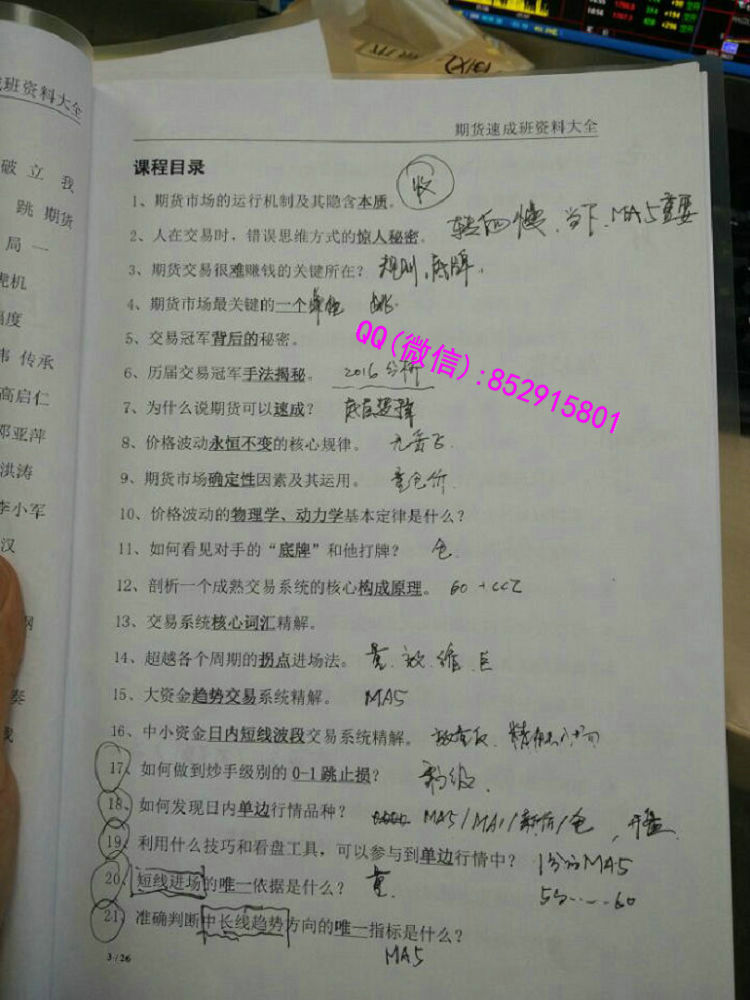 班资料大全
破 立 我
跳 期货
局 一
虎机
幅度
韦 传承
高启仁
邓亚萍
洪涛
李小军
汉
奏
我
期货速成班资料大全
课程目录
收
1、期货市场的运行机制及其隐含本质。
2、人在交易时，错误思维方式的惊人秘密。 当下、MA5重要
3、期货交易很难赚钱的关键所在？ 规则、底牌。
4、期货市场最关键的一个
5、交易冠军背后的秘密。
QQ(微信):852915801
6、历届交易冠军手法揭秘。 2016分析
7、为什么说期货可以速成？
8、价格波动永恒不变的核心规律。
9、期货市场确定性因素及其运用。 量仓价
10、价格波动的物理学、动力学基本定律是什么？
11、如何看见对手的“底牌”和他打牌？ 仓
12、剖析一个成熟交易系统的核心构成原理。 60+CCI
13、交易系统核心词汇精解。
14、超越各个周期的拐点进场法。 量、
15、大资金趋势交易系统精解。 MA5
16、中小资金日内短线波段交易系统精解。
17、如何做到炒手级别的 0-1 跳止损？ 秒级。
18、如何发现日内单边行情品种？ MA5/ 仓，开盘
19、利用什么技巧和看盘工具，可以参与到单边行情中？ 1分的MA5
20、短线进场的唯一依据是什么？ 量。 5分……60
21、准确判断中长线趋势方向的唯一指标是什么？
MA5
3 / 26